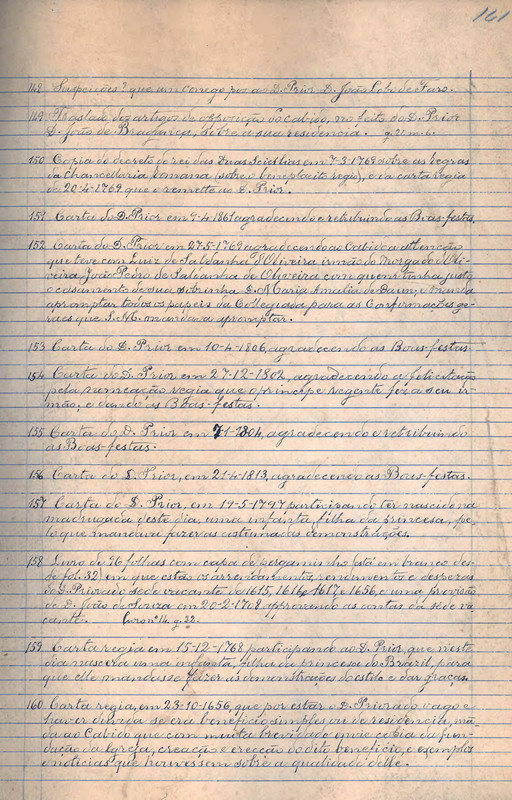 161
148 Suspeições? que um conego poz ao D. Prior D. João Lobo de Faro.
149 Traslado dos artigos de opposição do cabido, no feito do D. Prior
D. João de Bragança, sobre a sua residencia.
150 Copia do decreto do rei das Duas Scicilias em 7-3-1769 sobre as regras
da Chancellaria romana (sobre o beneplacito regio), e da carta regia
de 20-4-1769 que o remette ao D. Prior.
151 Carta do D. Prior em 9-4-1861 agradecendo e retribuindo as Boas-festas.
152 Carta do D. Prior em 27-5-1769 agradecendo ao Cabido a attenção
que teve com Luiz de Saldanha d'Oliveira irmão do Morgado d'Oli-
veira, João Pedro de Saldanha de Oliveira com quem tinha justo
o casamento de sua sobrinha D. Maria Amalia de Daun; e manda
apromptar todos os papeis da Collegiada para as Confirmações ge-
raes que S. M. mandava apromptar.
153 Carta do D. Prior em 10-4-1806, agradecendo as Boas-festas.
154 Carta do D. Prior em 27-12-1802, agradecendo a felicitação
pela nomeação regia que o principe regente fez a seu ir-
mão, e dando as Boas-festas.
155 Carta do D. Prior em 7-1-1804, agradecendo e retribuindo
as Boas-festas.
156 Carta do D. Prior, em 21-4-1813, agradecendo as Boas-festas.
157 Carta do D. Prior, em 19-5-1797 participando ter nascido na
madrugada deste dia, uma infanta, filha da princesa, pe-
lo que mandava fazer as costumadas demonstrações.
158 Livro de 96 folhas com capa de pergaminho (está em branco des-
de fol. 32) em que estão os arrendamentos, rendimentos e despezas
do D. Priorado sede vacante do 1615, 1616 e 1617 e 1656, e uma provisão
de D. João de Souza em 20-2-1708 approvando as contas da sede va-
cante. Livro nº 14, g. 22.
159 Carta regia em 15-12-1768 participando ao D. Prior, que n'este
dia nascera uma infanta, filha da princesa do Brazil, para
que elle mandasse fazer as demonstrações do estilo e dar graças.
160 Carta regia, em 23-10-1656, que por estar o D. Priorado vago e
haver duvida se era beneficio simples ou de residencia, man-
da ao Cabido que com muita brevidade envie copia da fun-
dação da Igreja, creação e erecção do dito beneficio, e exemplos
e noticias que houvessem sobre a qualidade d'elle.